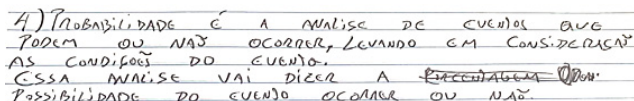 4) PROBABILIDADE É A ANALISE DE EVENTOS QUE
PODEM OU NAÕ OCORRER, LEVANDO EM CONSIDERAÇAÕ
AS CONDIÇOẼS DO EVENTO.
ESSA ANALISE VAI DIZER A
POSSIBILIDADE DO EVENTO OCORRER OU NAÕ.